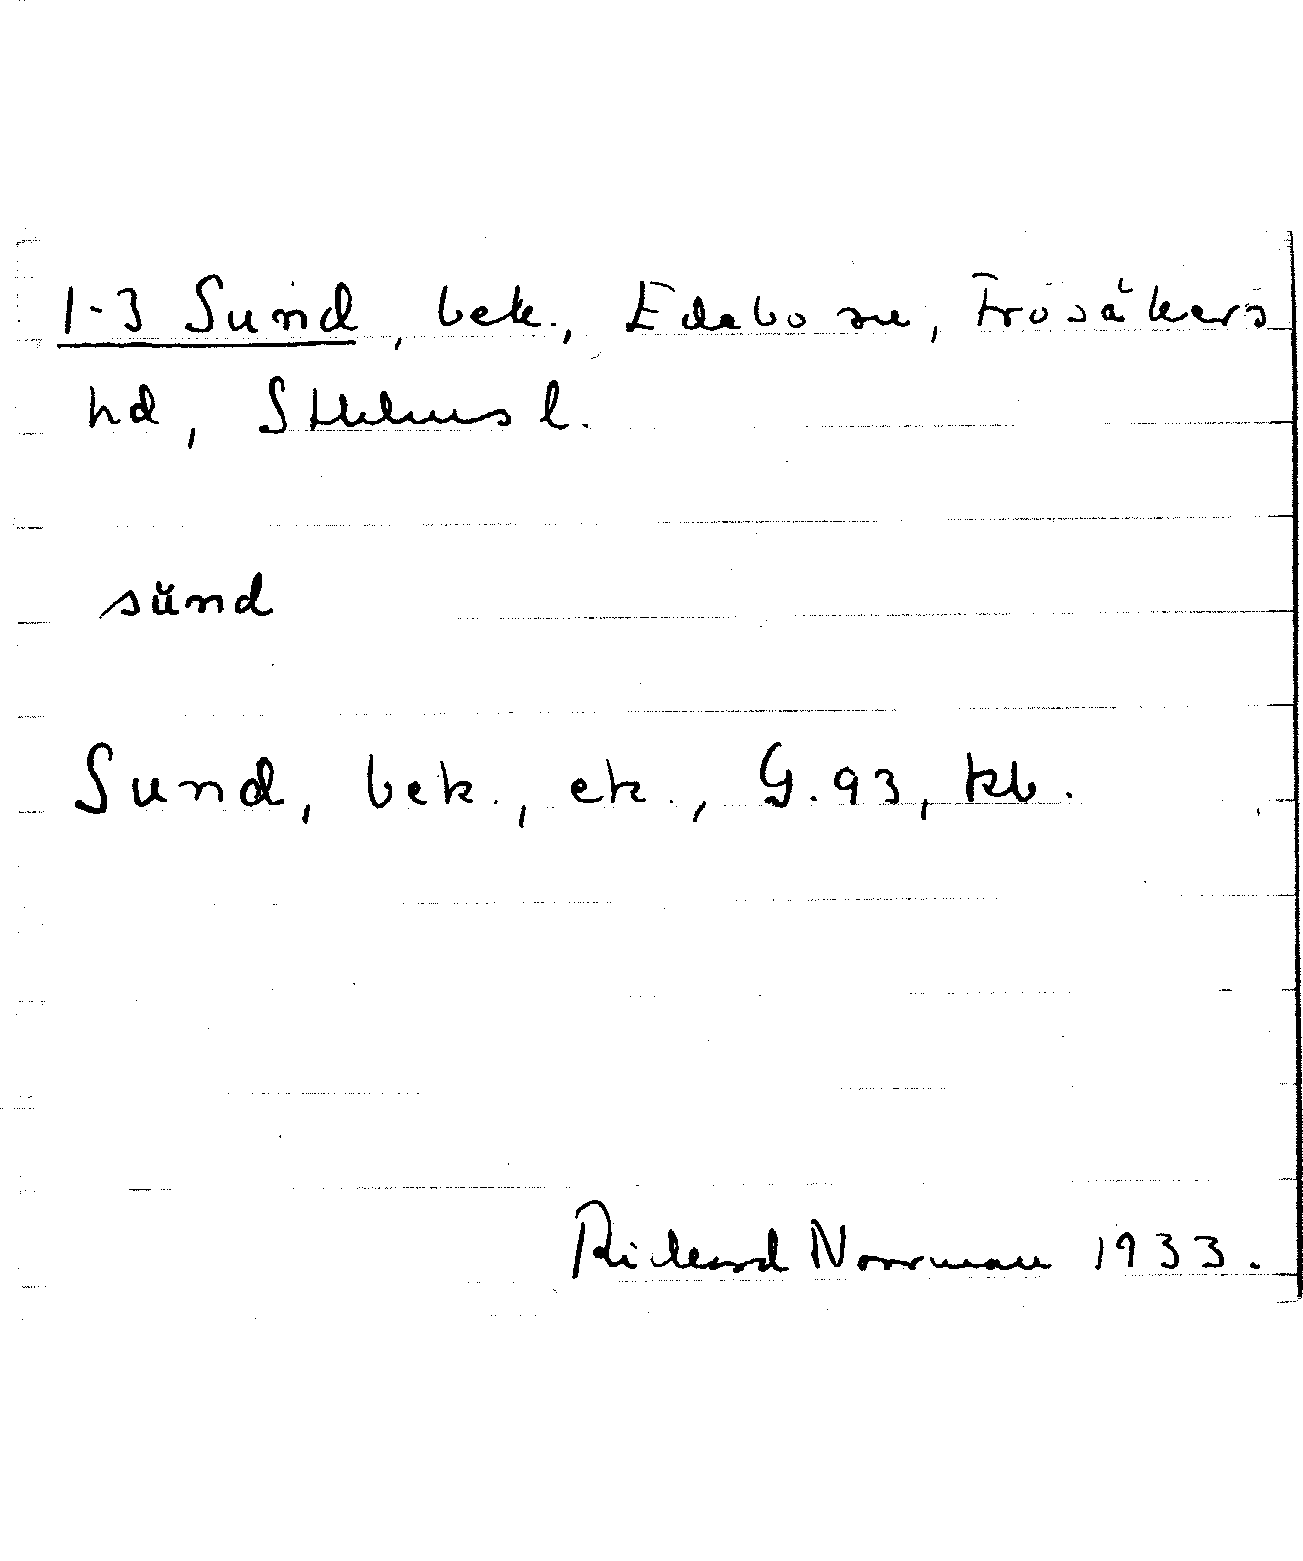 1-3 Sund, bek., Edebo sn, Frösåkers
hd, Sthlms l.
sŭnd
Sund, bek., ek., G. 93, kb.
Richard Norrman 1933.